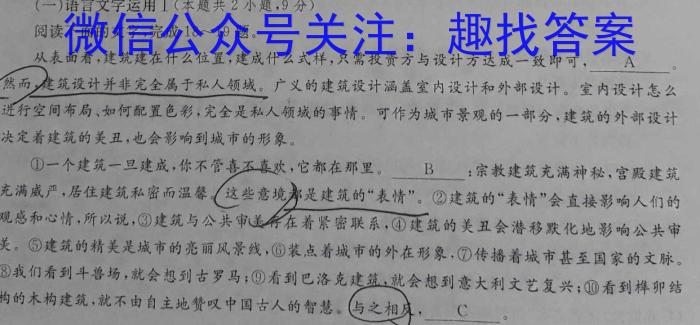 (一)语言文字运用Ⅰ(本题共2小题,9分)
阅读
微信公众号关注：趣找答案
从表面看,建筑建在什么位置,建成什么式样,只需投资方与设计方达成一致即可,  A  。
然而,建筑设计并非完全属于私人领域。广义的建筑设计涵盖室内设计和外部设计。室内设计怎么
进行空间布局、如何配置色彩,完全是私人领域的事情。可作为城市景观的一部分,建筑的外部设计
决定着建筑的美丑,也会影响到城市的形象。
①一个建筑一旦建成,你不管喜不喜欢,它都在那里。  B  :宗教建筑充满神秘,宫殿建筑
充满威严,居住建筑私密而温馨。这些意境都是建筑的“表情”。②建筑的“表情”会直接影响人们的
观感和心情,所以说,③建筑与公共审美存在着紧密联系,④建筑的美丑会潜移默化地影响公共审
美。⑤建筑的精美是城市的亮丽风景线,⑥装点着城市的外在形象,⑦传播着城市甚至国家的文脉。
⑧我们看到斗兽场,就会想到古罗马;⑨看到巴洛克建筑,就会想到意大利文艺复兴;⑩看到榫卯结
构的木构建筑,就不由自主地赞叹中国古人的智慧。与之相反,  C  。